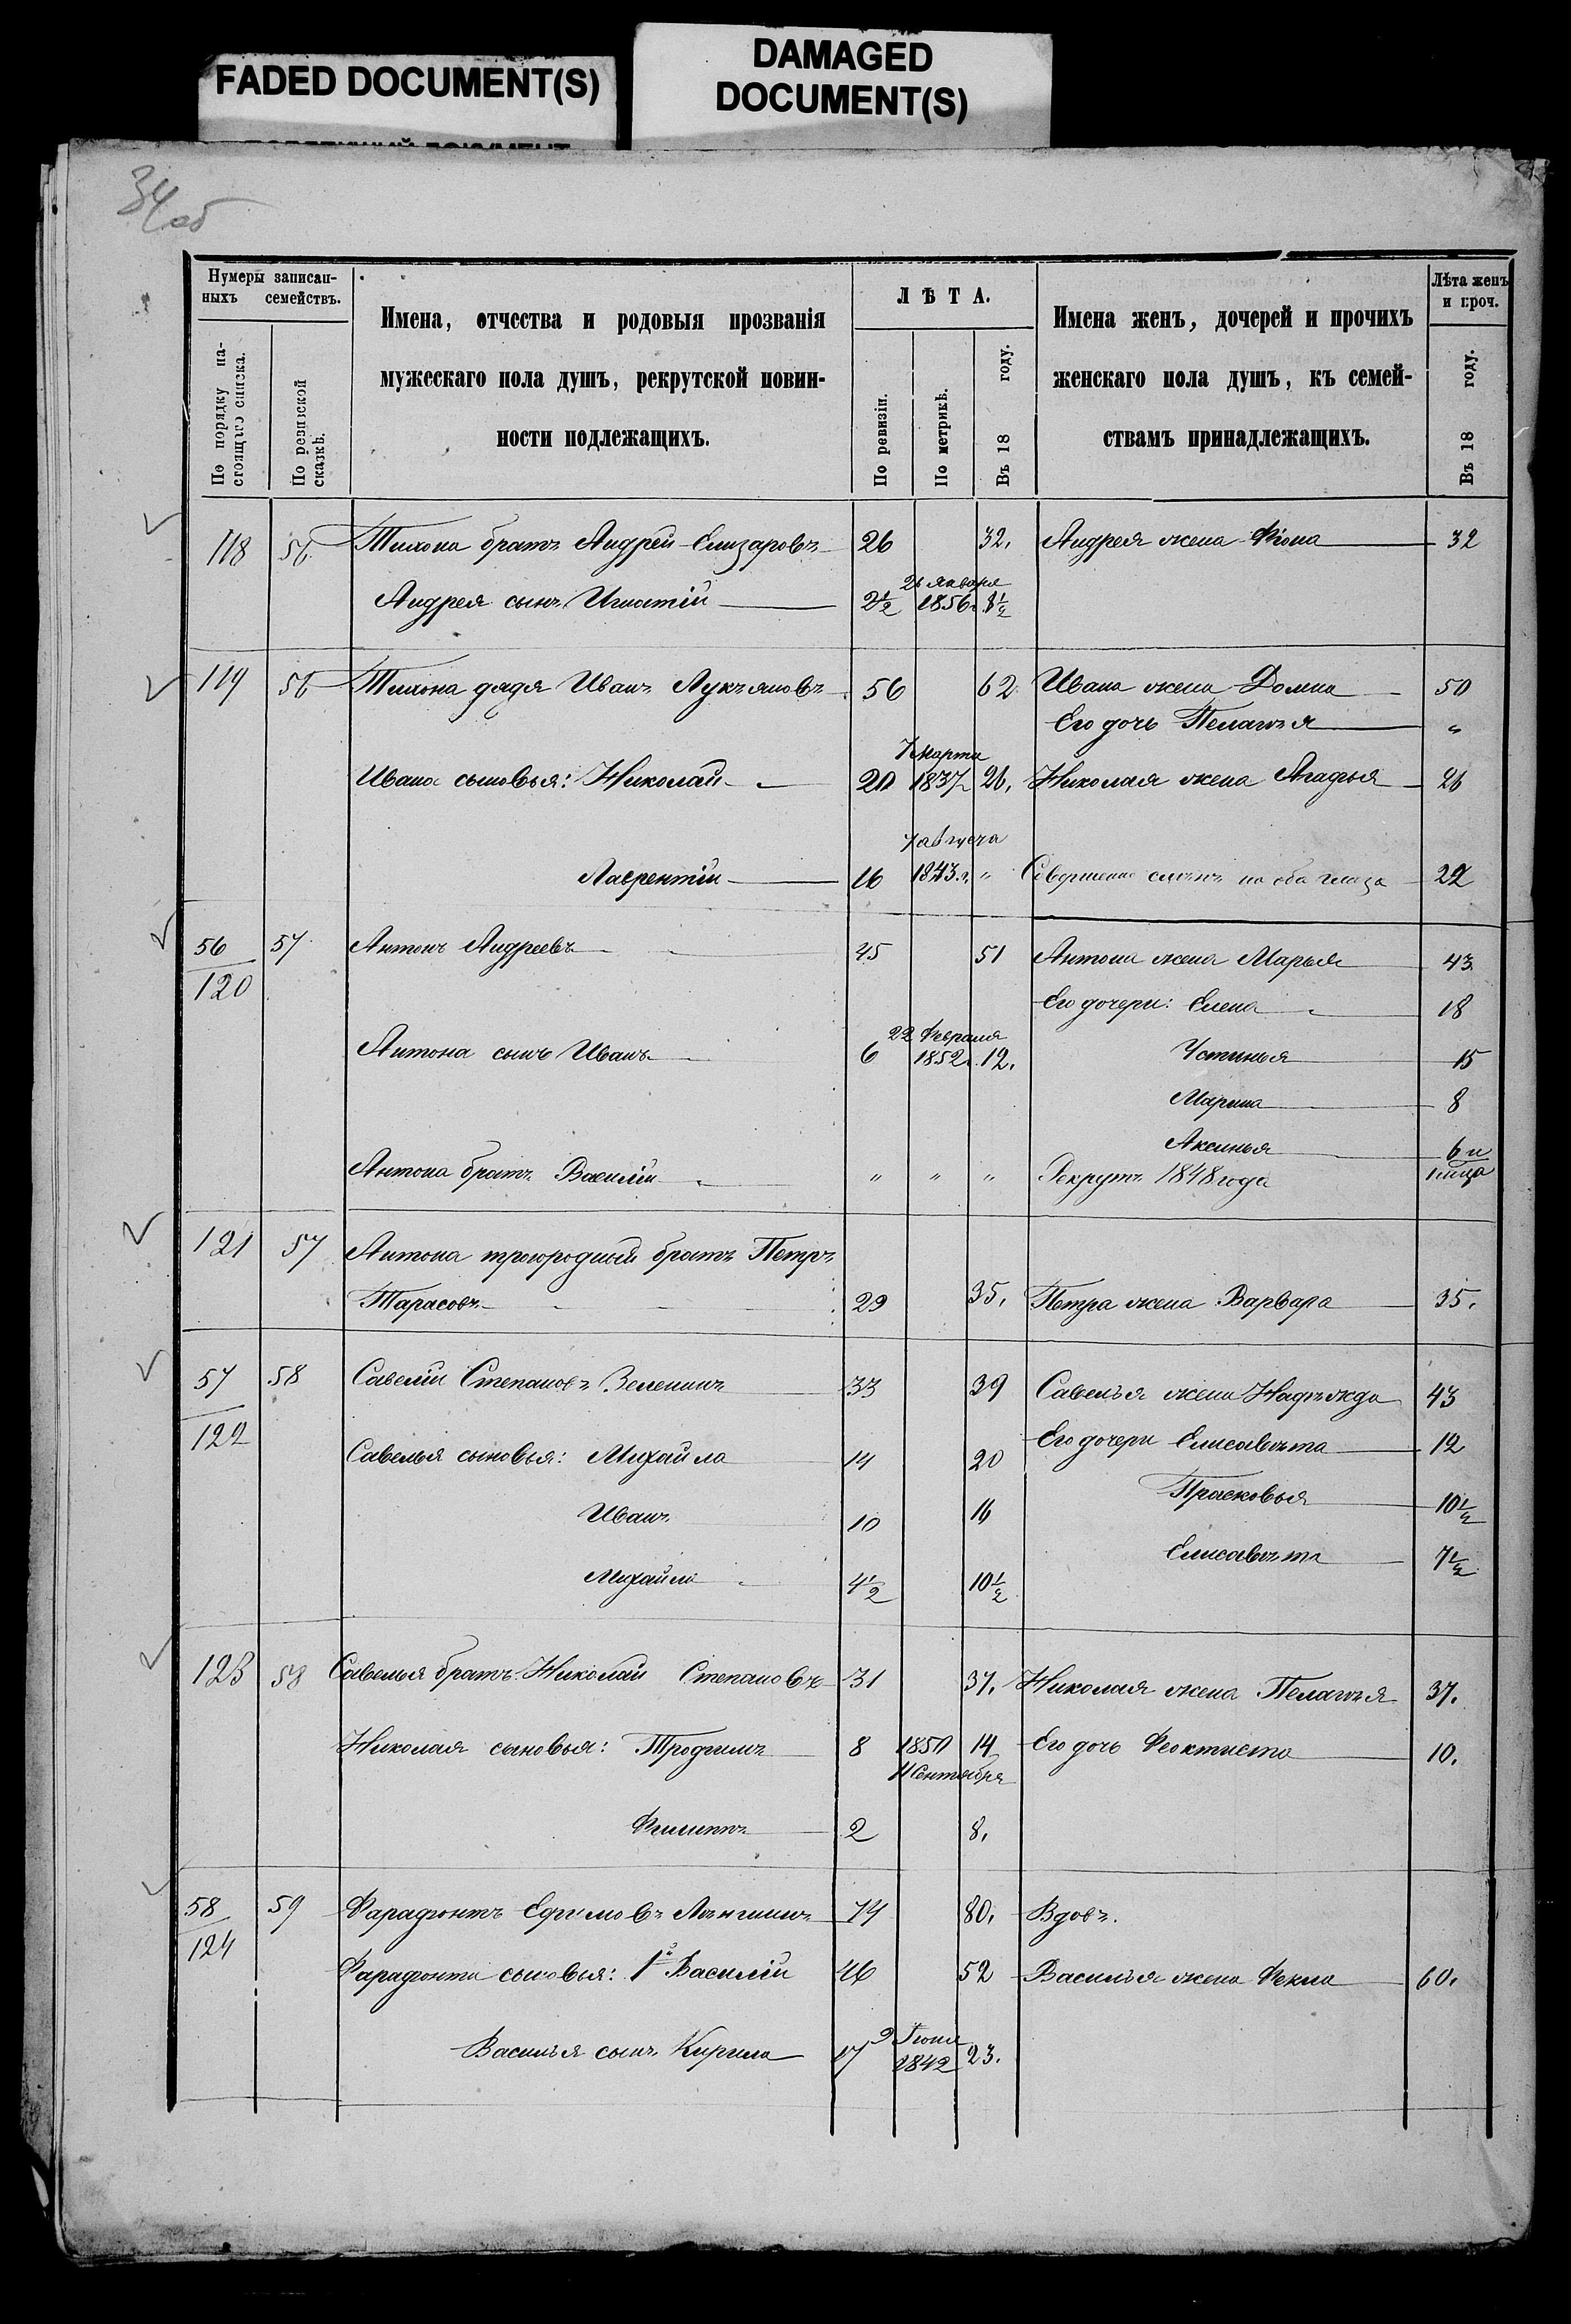 FADED DOCUMENT(S)
DAMAGED
DOCUMENT(S)
34 об
Нумеры записан-
ныхъ семействъ.
По порядку на-
стоящаго списка.
По ревизской
сказкѣ.
Имена, отчества и родовыя прозванія
мужескаго пола душъ, рекрутской повин-
ности подлежащихъ.
ЛѢТА.
По ревизіи.
По метрикѣ.
Въ 18 году.
Имена женъ, дочерей и прочихъ
женскаго пола душъ, къ семей-
ствамъ принадлежащихъ.
Лѣта женъ
и проч.
Въ 18 году.
118 56 Тихона братъ Андрей Елизаровъ 26 32. Андрея жена Фіона 32
26 Января
Андрея сынъ Игнатій 2½ 1856 г. 8½
119 56 Тихона дядя Иванъ Лукъяновъ 56 62 Ивана жена Домна 50
Его дочь Пелагѣя "
7 Марта
Ивана сыновья: Николай 20 1837 26. Николая жена Агафья 26
7 августа
Лаврентій 16 1843 г. " Совершенно слѣпъ на оба глаза 22
56 57 Антонъ Андреевъ 45 51 Антона жена Марья 43
120
Его дочери: Елена 18
22 Февраля
Антона сынъ Иванъ 6 1852 г. 12. Устинья 15
Марина 8
Аксинья 6 и
Антона братъ Василій " " " Рекрутъ 1848 года 1 мѣсца
121 57 Антона троюродный братъ Петръ
Тарасовъ 29 35. Петра жена Варвара 35.
57 58 Савелій Степановъ Зеленинъ 33 39 Савелья жена Надѣжда 43
122
Его дочери Елисавѣта 12
Савелья сыновья: Михайла 14 20
Прасковья 10½
Иванъ 10 16
Елисавѣта 7½
Михайла 4½ 10½
123 58 Савелья братъ Николай Степановъ 31 37. Николая жена Пелагѣя 37.
Николая сыновья: Трофимъ 8 1850 14 Его дочь Феоктиста 10.
11 Сентября
Филиппъ 2 8.
58 59 Фарафонтъ Ефимовъ 74 80. Вдовъ.
124
Фарафонта сыновья: 1й Василій 46 52 Василья жена Фекла 60.
2 Іюня
Василья сынъ Кирила 17 1842 23.